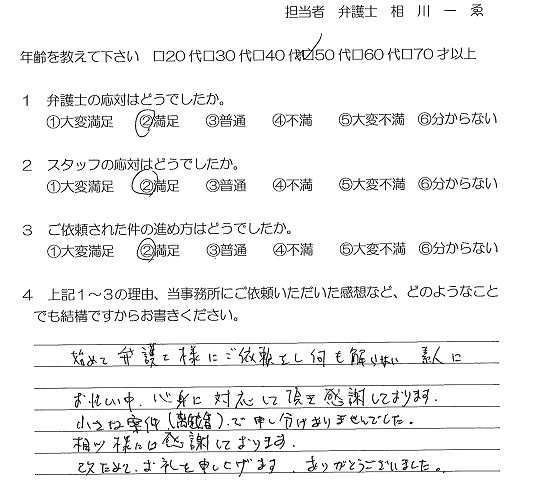 担当者　弁護士　相　川　一　ゑ
年齢を教えて下さい　□20代□30代□40代□50代□60代□70才以上
１　弁護士の応対はどうでしたか。
①大変満足　②満足　③普通　④不満　⑤大変不満　⑥分からない
２　スタッフの応対はどうでしたか。
①大変満足　②満足　③普通　④不満　⑤大変不満　⑥分からない
３　ご依頼された件の進め方はどうでしたか。
①大変満足　②満足　③普通　④不満　⑤大変不満　⑥分からない
４　上記１～３の理由、当事務所にご依頼いただいた感想など、どのようなこと
でも結構ですからお書きください。
始めて弁護士様にご依頼をし何も解らない　素人に
お忙い中、心身に対応して頂き感謝しております。
小さな案件(離婚)で申し分けありませんでした。
相川様には感謝しております。
改ためて、お礼を申し上げます、ありがとうございました。